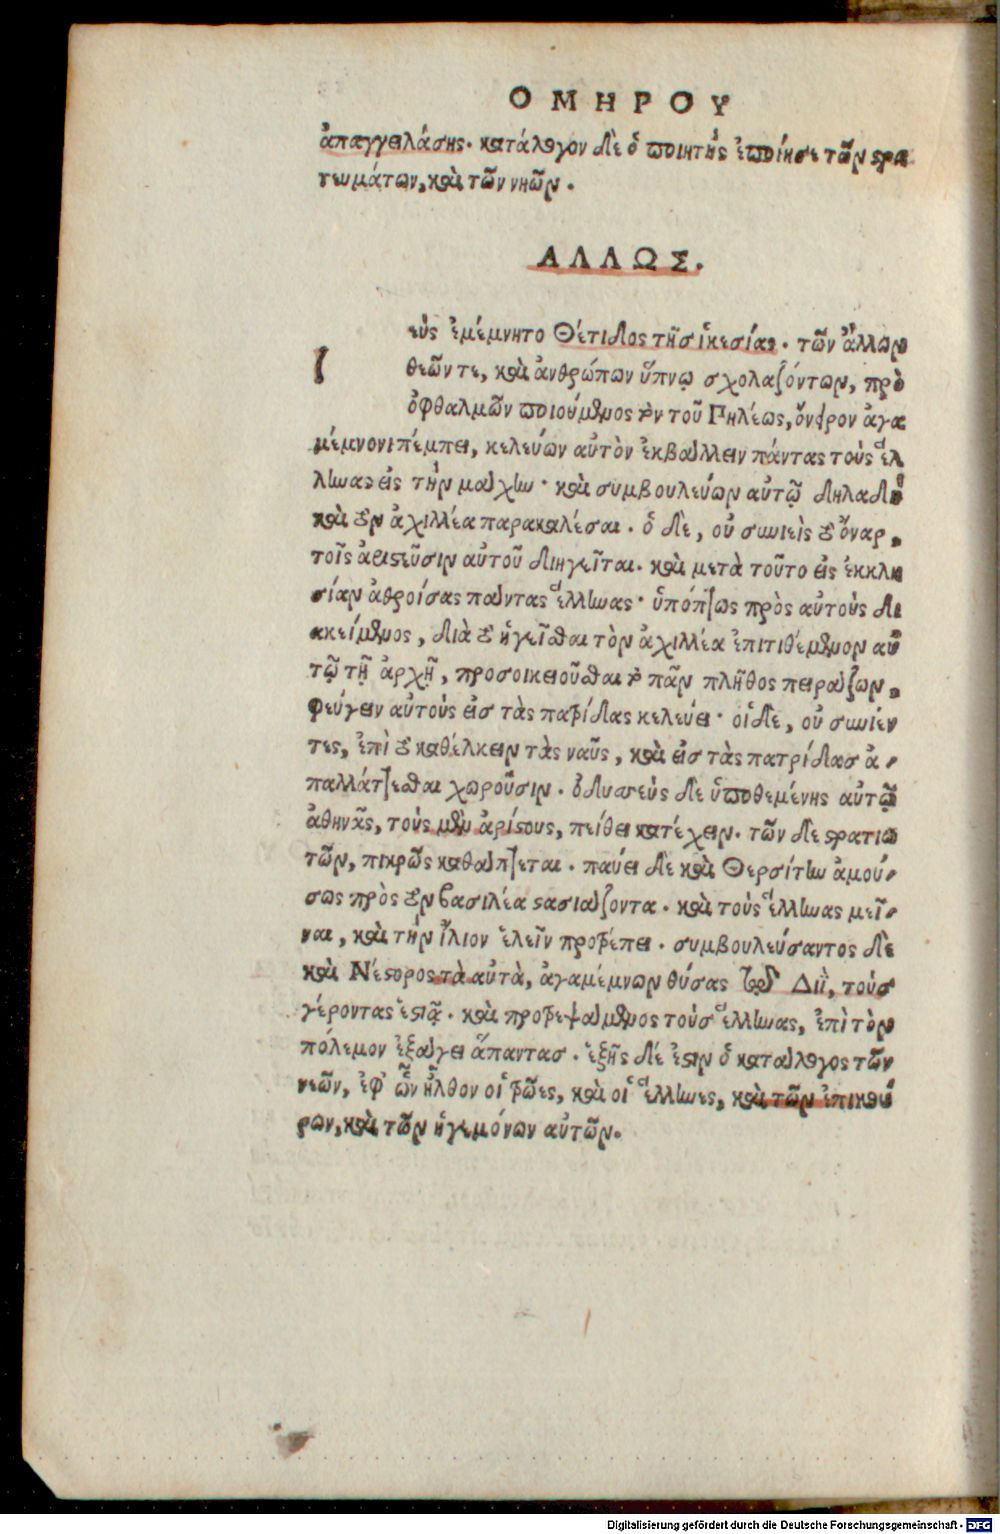 ΟΜΗΡΟΥ
ἀπαγγειλάσης. κατάλογον δὲ ὁ ποιητὴς ἐποίησε τῶν στρα
τευμάτων, καὶ τῶν νηῶν.
ΑΛΛΩΣ.
ζ
εὺς ἐμέμνητο Θέτιδος τῆσ ἱκεσίας. τῶν ἄλλων
θεῶν τε, καὶ ἀνθρώπων ὕπνῳ σχολαζόντων, πρὸ
ὀφθαλμῶν ποιούμενος τὸν τοῦ Πηλέως, ὄνειρον ἀγα
μέμνονι πέμπει, κελεύων αὐτὸν ἐκβάλλειν πάντας τοὺς ἕλ
ληνας εἰς τὴν μάχην· καὶ συμβουλεύων αὐτῷ δηλαδὴ
καὶ τὸν ἀχιλλέα παρακαλέσαι. ὁ δὲ, οὐ συνιεὶς τὸ ὄναρ,
τοῖς ἀριστεῦσιν αὐτοῦ διηγεῖται. καὶ μετὰ τοῦτο εἰς ἐκκλη
σίαν ἀθροίσας πάντας ἕλληνας· ὑπόπτως πρὸς αὐτοὺς δι
ακείμενος, διὰ τὸ ἡγεῖσθαι τὸν ἀχιλλέα ἐπιτιθέμενον αὐ
τῷ τῇ ἀρχῇ, προσοικειοῦσθαι τὸ πᾶν πλῆθος πειράζων,
φεύγειν αὐτοὺς εἰσ τὰς πατρίδας κελεύει· οἱ δὲ, οὐ συνιέν
τες, ἐπὶ τὸ καθέλκειν τὰς ναῦς, καὶ εἰσ τὰς πατρίδασ ἀ-
παλλάττεσθαι χωροῦσιν. ὀδυσσεὺς δὲ ὑποθεμένης αὐτῷ
ἀθηνᾶς, τοὺς μὲν ἀρίστους, πείθει κατέχειν. τῶν δε στρατιω
τῶν, πικρῶς καθάπτεται. παύει δὲ καὶ Θερσίτην ἀμού-
σως πρὸς τὸν βασιλέα στασιάζοντα. καὶ τοὺς ἕλληνας μεῖ-
ναι, καὶ τὴν ἴλιον ἑλεῖν προτρέπει. συμβουλεύσαντος δὲ
καὶ Νέστορος τὰ αὐτὰ, ἀγαμέμνων θύσας τῷ Διῒ, τοὺσ
γέροντας ἑστιᾷ. καὶ προτρεψάμενος τοὺσ ἕλληνας, ἐπὶ τὸν
πόλεμον ἐξάγει ἅπαντασ. ἑξῆς δέ ἐστιν ὁ κατάλογος τῶν
νεῶν, ἐφ' ὧν ἦλθον οἱ τρῶες, καὶ οἱ ἕλληνες, καὶ τῶν ἐπικού
ρων, καὶ τῶν ἡγεμόνων αὐτῶν.
Digitalisierung gefördert durch die Deutsche Forschungsgemeinschaft - DFG